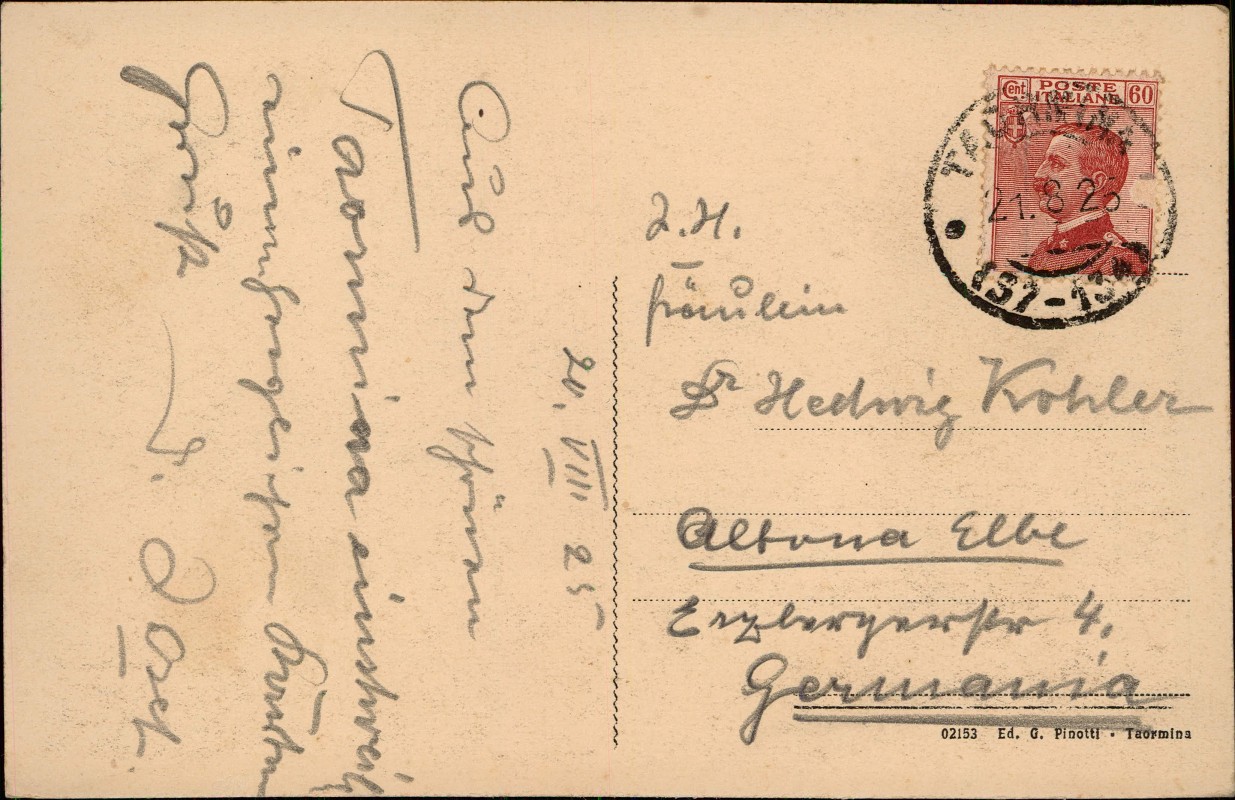 20. VIII 25
Aus dem schönen
Taormina einstweilig
einen herzlichen
Gruß
J.
Cent POSTE ITALIANE 60
TAORMINA
21.8.25
(37-13)
Z. H.
Fräulein
Dr Hedwig Kohler
Altona Elbe
Erzbergerstr 4.
Germania
02153 Ed. G. Pinotti • Taormina